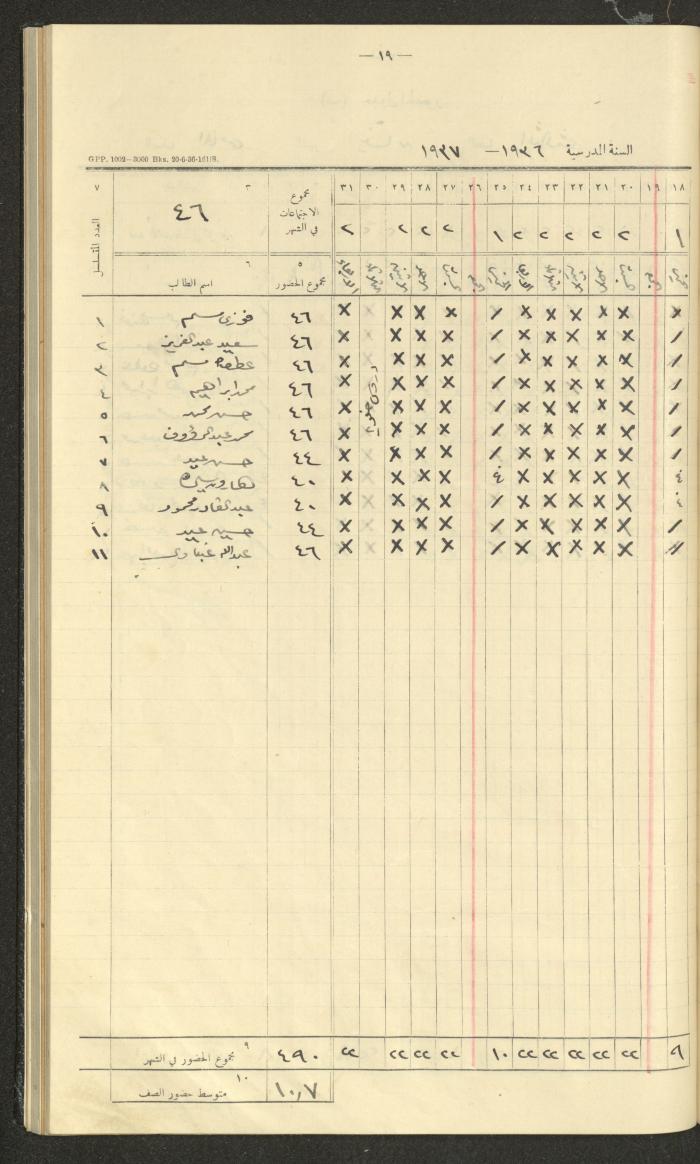 — ١٩ —
السنة المدرسية ١٩٣٦ — ١٩٣٧
GPP. 1002—3000 Bks. 20-6-36-161/8.
١٨ ١٩ ٢٠ ٢١ ٢٢ ٢٣ ٢٤ ٢٥ ٢٦ ٢٧ ٢٨ ٢٩ ٣٠ ٣١ مجموع الاجتماعات في الشهر ٣ ٧
١ ٢ ٢ ٢ ٢ ٢ ١ ٢ ٢ ٢ ٢ ٤٦
الخميس الجمعة السبت الاحد الاثنين الثلاثاء الاربعاء الخميس الجمعة السبت الاحد الاثنين الثلاثاء الاربعاء ٥ مجموع الحضور ٦ اسم الطالب العدد المتسلسل
/ X X X X X / X X X X ٤٦ فوزي سليم ١
/ X X X X X / X X X X ٤٦ سعيد عبد العزيز ٢
/ X X X X X / X X X X ٤٦ سليم ٣
/ X X X X X / X X X X ٤٦ محمد ابراهيم ٤
/ X X X X X / X X X X ٤٦ حسن محمد ٥
/ X X X X X / X X X X ٤٦ محمد عبد الرؤوف ٦
/ X X X X X / X X X X ٤٤ حسن عيد ٧
غ X X X X X غ X X X X ٤٠ ٨
غ X X X X X / X X X X ٤٠ عبد القادر محمود ٩
/ X X X X X / X X X X ٤٤ حسين عيد ١٠
/ X X X X X / X X X X ٤٦ عبد الله ١١
٩ ٢٢ ٢٢ ٢٢ ٢٢ ٢٢ ١٠ ٢٢ ٢٢ ٢٢ ٢٢ ٤٩٠ ٩ مجموع الحضور في الشهر
١٠,٧ ١٠ متوسط حضور الصف